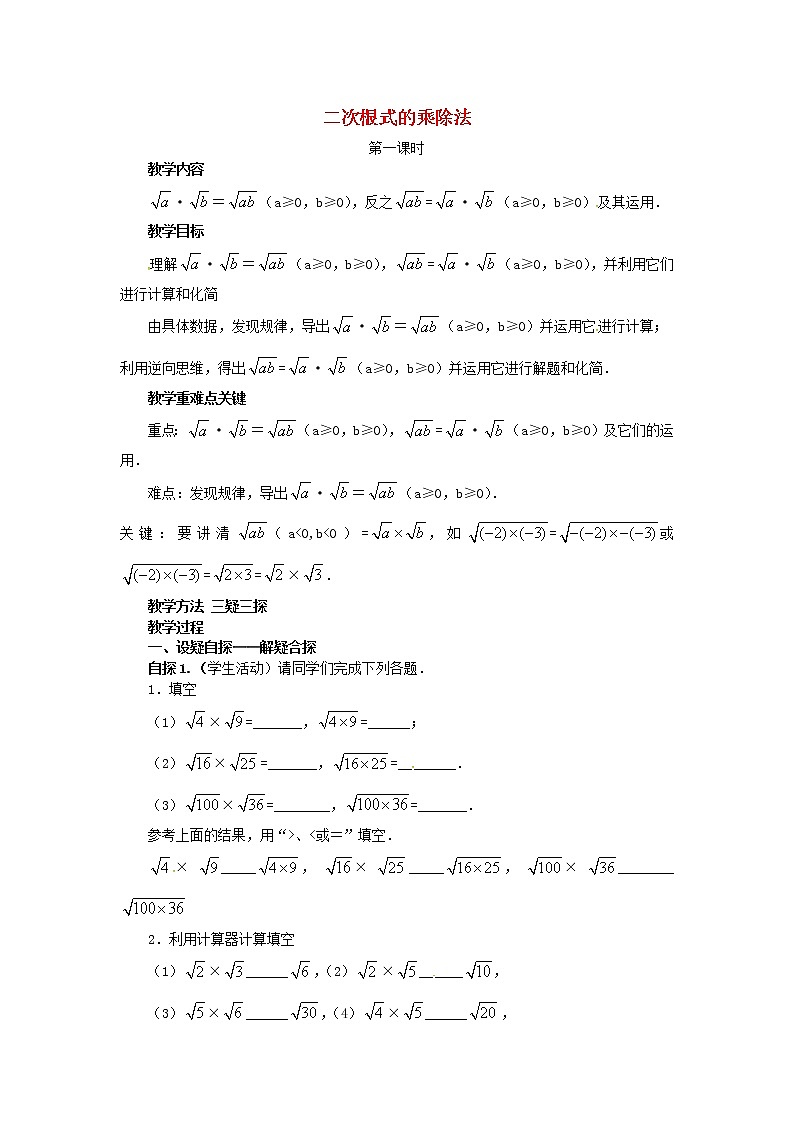 二次根式的乘除法
第一课时
教学内容
√a·√b=√ab（a≥0,b≥0),反之√ab=√a·√b（a≥0,b≥0)及其运用.
教学目标
理解√a·√b=√ab（a≥0,b≥0),√ab=√a·√b（a≥0,b≥0),并利用它们
进行计算和化简
由具体数据,发现规律,导出√a·√b=√ab（a≥0,b≥0)并运用它进行计算;
利用逆向思维,得出√ab=√a·√b（a≥0,b≥0)并运用它进行解题和化简.
教学重难点关键
重点:√a·√b=√ab（a≥0,b≥0),√ab=√a·√b（a≥0,b≥0)及它们的运
用.
难点:发现规律,导出√a·√b=√ab（a≥0,b≥0).
关键:要讲清√ab(a<0,b<0)=√a×√b,如√(−2)×(−3)=√−(−2)×−(−3)或
√(−2)×(−3)=√2×3=√2×√3.
教学方法 三疑三探
教学过程
一、设疑自探——解疑合探
自探1.(学生活动)请同学们完成下列各题.
1.填空
(1)√4×√9=_______,√4×9=______;
(2)√16×√25=_______,√16×25=________.
(3)√100×√36=________,√100×36=_______.
参考上面的结果,用“>、<或=”填空.
√4×√9_____√4×9,√16×√25_____√16×25,√100×√36________
√100×36
2.利用计算器计算填空
(1)√2×√3______√6,(2)√2×√5______√10,
(3)√5×√6______√30,(4)√4×√5______√20,